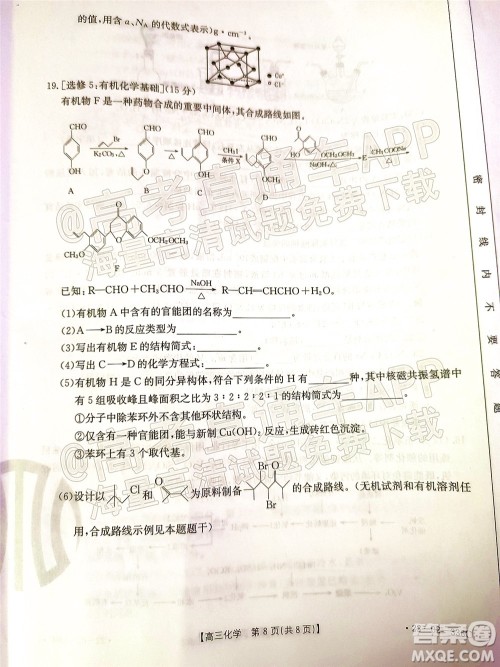 的值,用含 a、Nₐ 的代数式表示)g·cm⁻³。
Cu⁺
Cl⁻
19.[选修5:有机化学基础](15分)
有机物 F 是一种药物合成的重要中间体,其合成路线如图。
CHO
OH
A
Br
K₂CO₃,△
CHO
O
B
△
CHO
OH
C
CH₃I
条件X
CHO
OCH₃
D
HO
OCH₂OCH₃
NaOH/△
E
CH₃COONa
△
O
CH₃O
OCH₂OCH₃
F
已知:R—CHO+CH₃CHO NaOH △ R—CH=CHCHO+H₂O。
(1)有机物 A 中含有的官能团的名称为
(2)A→B 的反应类型为
(3)写出有机物 E 的结构简式:
(4)写出 C→D 的化学方程式:
(5)有机物 C 的同分异构体符合下列条件的 H 有 种,其中核磁共振氢谱中
有 5 组吸收峰且峰面积之比为 3∶2∶2∶2∶1 的结构简式为
①分子中除苯环外不含其他环状结构。
②仅含有一种官能团,能与新制 Cu(OH)₂ 反应,生成砖红色沉淀。
③苯环上有 3 个取代基。
(6)设计以 Cl 和 O 为原料制备 Br O Br 的合成路线。(无机试剂和有机溶剂任
用,合成路线示例见本题题干)
【高三化学 第 8 页(共 8 页)】
密封线内不要答题
@高考直通车APP
海量高清试题免费下载
@高考直通车APP
海量高清试题免费下载
答案圈
MXQE.COM